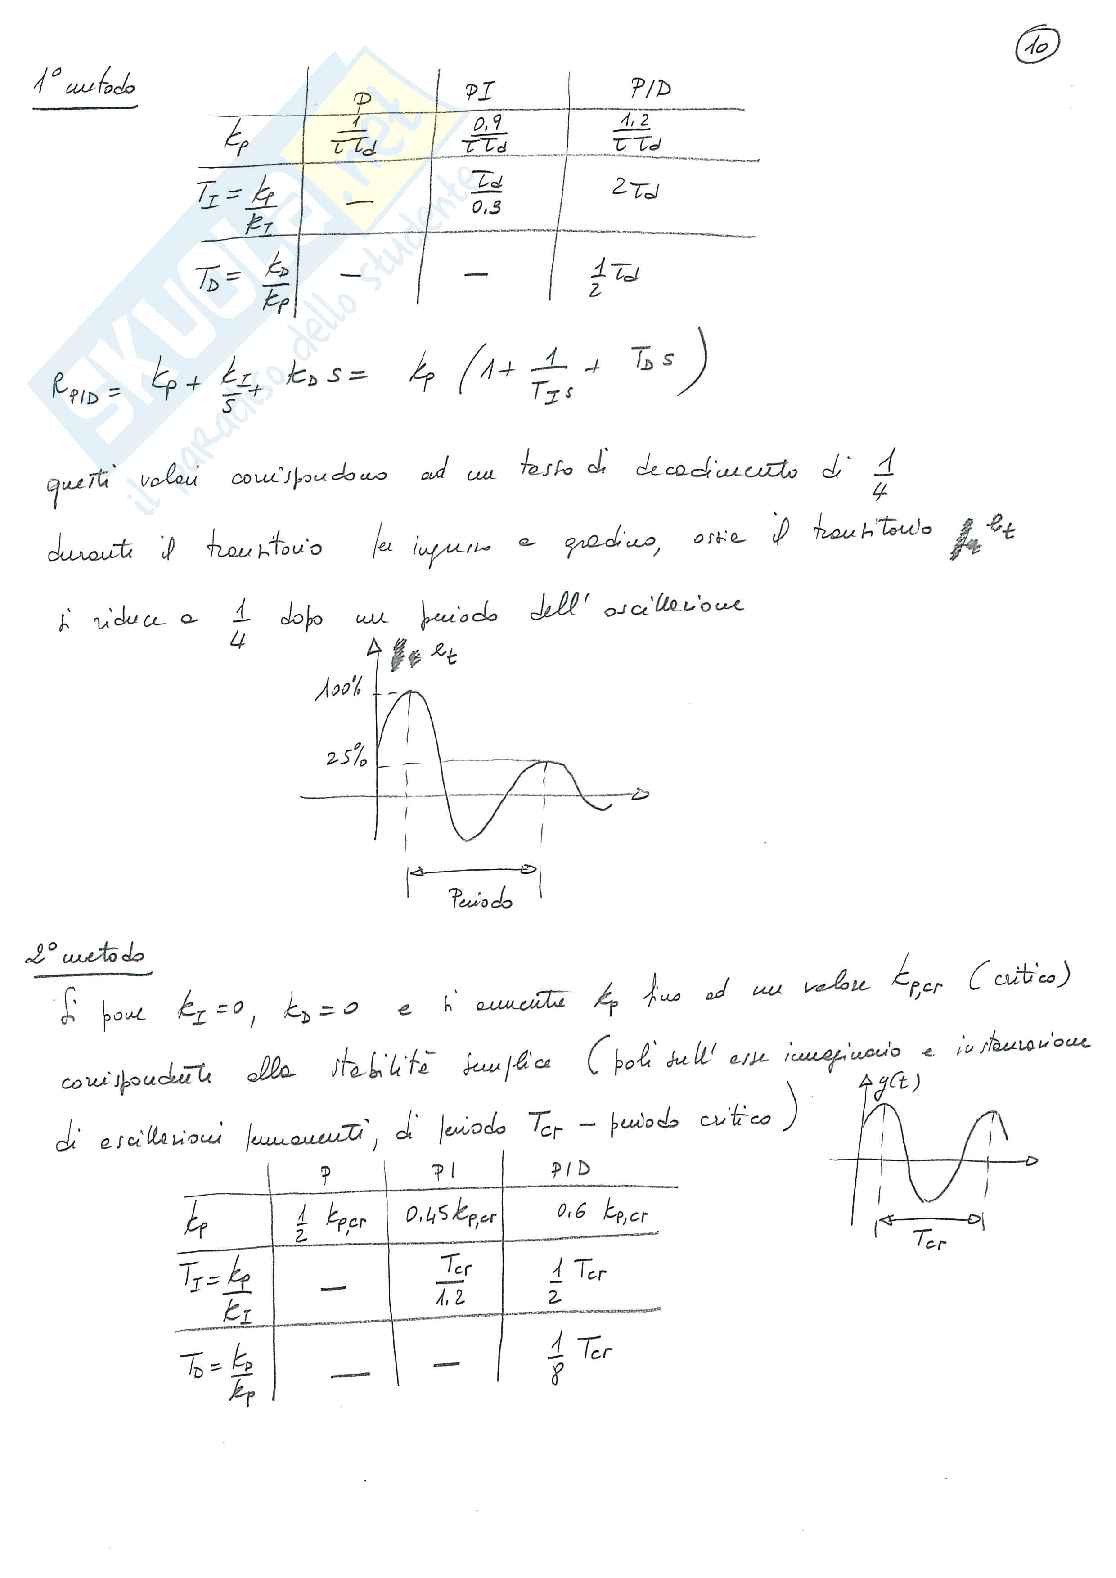 10
1° metodo
P PI PID
kp 1/(τ τd) 0,9/(τ τd) 1,2/(τ τd)
TI = kp/kI — τd/0,3 2τd
TD = kD/kp — — 1/2 τd
RPID = kp + kI/s + kD s = kp (1 + 1/(TI s) + TD s)
questi valori corrispondono ad un tasso di decadimento di 1/4
durante il transitorio per ingresso a gradino, ossia il transitorio et
si riduce a 1/4 dopo un periodo dell'oscillazione
et
100%
25%
Periodo
2° metodo
Si pone kI=0, kD=0 e si aumenta kp fino ad un valore kp,cr (critico)
corrispondente alla stabilità semplice (poli sull'asse immaginario e instaurazione
di oscillazioni permanenti, di periodo Tcr – periodo critico)
y(t)
Tcr
P PI PID
kp 1/2 kp,cr 0,45 kp,cr 0,6 kp,cr
TI = kp/kI — Tcr/1,2 1/2 Tcr
TD = kD/kp — — 1/8 Tcr
SKUOLA.net
il paradiso dello studente